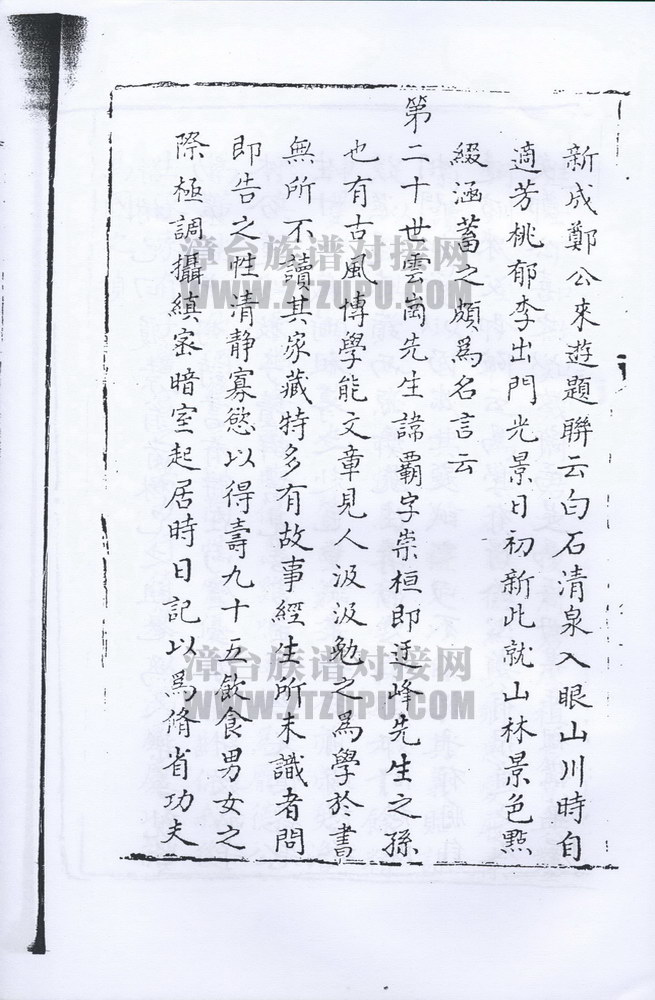 新成鄭公來遊題聯云白石清泉入眼山川時自
適芳桃郁李出門光景日初新此就山林景色點
綴涵蓄之頗為名言云
第二十世雲崗先生諱霸字崇桓即迂峰先生之孫
也有古風博學能文章見人汲汲勉之為學於書
無所不讀其家藏特多有故事經生所未識者問
即告之性清靜寡慾以得壽九十五飲食男女之
際極調攝縝密暗室起居時日記以為脩省功夫
漳台族谱对接网
WWW.ZTZUPU.COM
漳台族谱对接网
WWW.ZTZUPU.COM